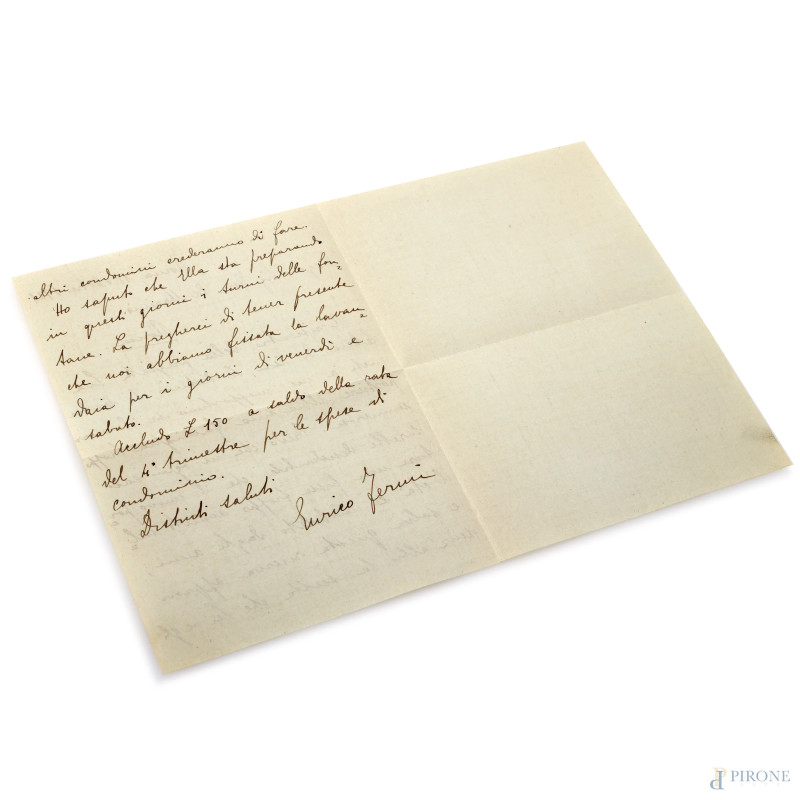 altri condomini crederanno di fare.
Ho saputo che Ella sta preparando
in questi giorni i turni delle fon=
tane. La pregherei di tener presente
che noi abbiamo fissata la lavan=
daia per i giorni di venerdì e
sabato.
Accludo £ 150 a saldo della rata
del 4° trimestre per le spese di
condominio.
Distinti saluti
Enrico Fermi
PIRONE